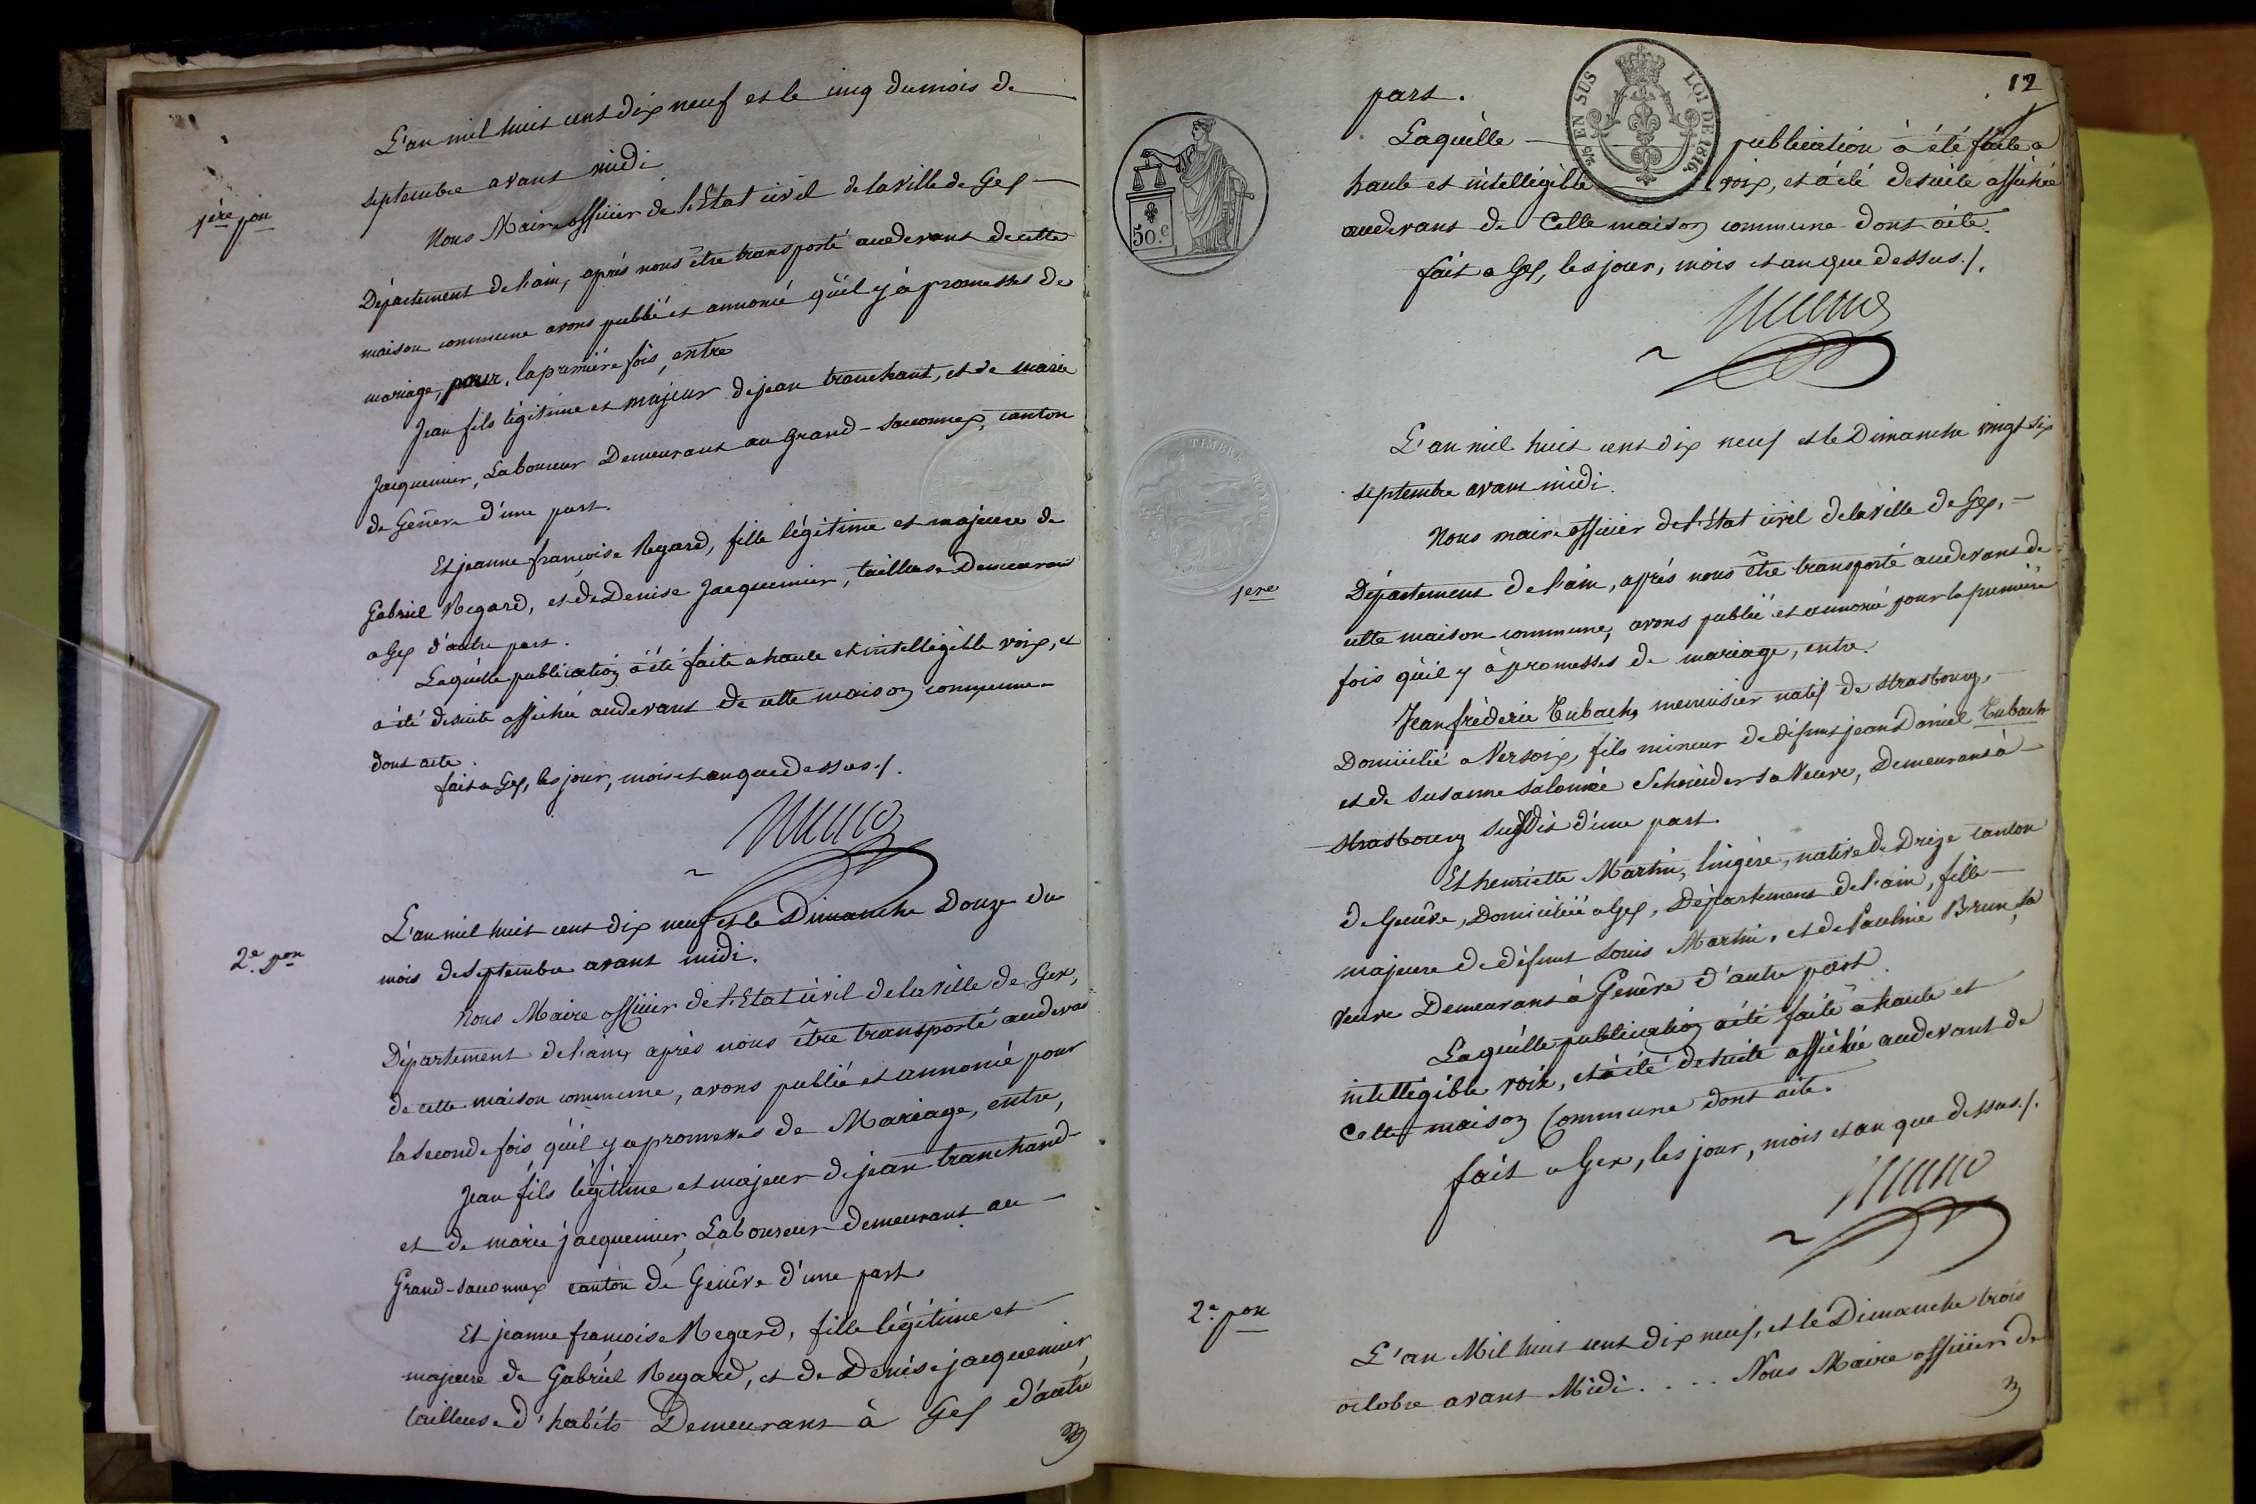 L'an mil huit cent dix neuf et le cinq du mois de
septembre avant midi
1ère pon
Nous Maire officier de l'Etat civil de la ville de Gex
Département de l'ain, après nous être transporté audevant de cette
maison commune avons publié et annoncé qu'il y à promesses de
mariage, pour la première fois, entre
Jean fils légitime et majeur de jean tranchant, et de marie
Jacquemier, Laboureur Demeurant au Grand-Saconnex, canton
de Genève d'une part.
Et jeanne françoise Regard, fille légitime et majeure de
Gabriel Regard, et de Denise Jacquemier, tailleuse Demeurant
a Gex d'autre part.
Laquelle publication à été faite a haute et intelligible voix, et
à été desuite affichée audevant de cette maison commune
dont acte.
fait a Gex, les jour, mois et an que dessus./.
2e pon
L'an mil huit cent dix neuf et le Dimanche Douze du
mois de Septembre avant midi.
Nous Maire officier de l'Etat civil de la ville de Gex,
Département de l'ain, après nous être transporté audevant
de cette maison commune, avons publié et annoncé pour
la Seconde fois qu'il y a promesses de Mariage, entre,
Jean fils légitime et majeur de jean tranchand
et de marie jacquemier, Laboureur demeurant au
Grand-Saconnex canton de Genève d'une part.
Et jeanne françoise Regard, fille légitime et
majeure de Gabriel Regard, et de Denise jacquemier,
tailleuse d'habits Demeurant à Gex d'autre
12
part.
Laquelle publication à été faite a
haute et intelligible voix, et à été desuite affichée
audevant de Cette maison commune dont acte.
fait a Gex, les jour, mois et an que dessus./.
3/5 EN SUS
LOI DE 1816.
50.c
TIMBRE ROYAL
L'an mil huit cent dix neuf et le Dimanche vingt six
septembre avant midi.
Nous maire officier de l'Etat civil de la ville de Gex,
1ere
Département de l'ain, après nous être transporté audevant de
cette maison commune, avons publié et annoncé pour la première
fois qu'il y à promesses de mariage, entre.
Jean fréderic Eubach, menuisier natif de Strasbourg,
Domicilié a Versoix, fils mineur de défunt jean Daniel Eubach
et de Susanne Salomée Schneider sa Veuve, Demeurant à
Strasbourg Susdit d'une part.
Et henriette Martin, lingère, native de Drize canton
de Genève, Domiciliée a Gex, Département de l'ain, fille
majeure de défunt Louis Martin, et de Pauline Brun, Sa
veuve Demeurant à Genève d'autre part.
Laquelle publication à été faite à haute et
intelligible voix, et à été desuite affichée audevant de
Cette maison Commune dont acte.
fait a Gex, les jour, mois et an que dessus./.
2e pon
L'an Mil huit cent dix neuf, et le Dimanche trois
octobre avant Midi. . . . Nous Maire officier de